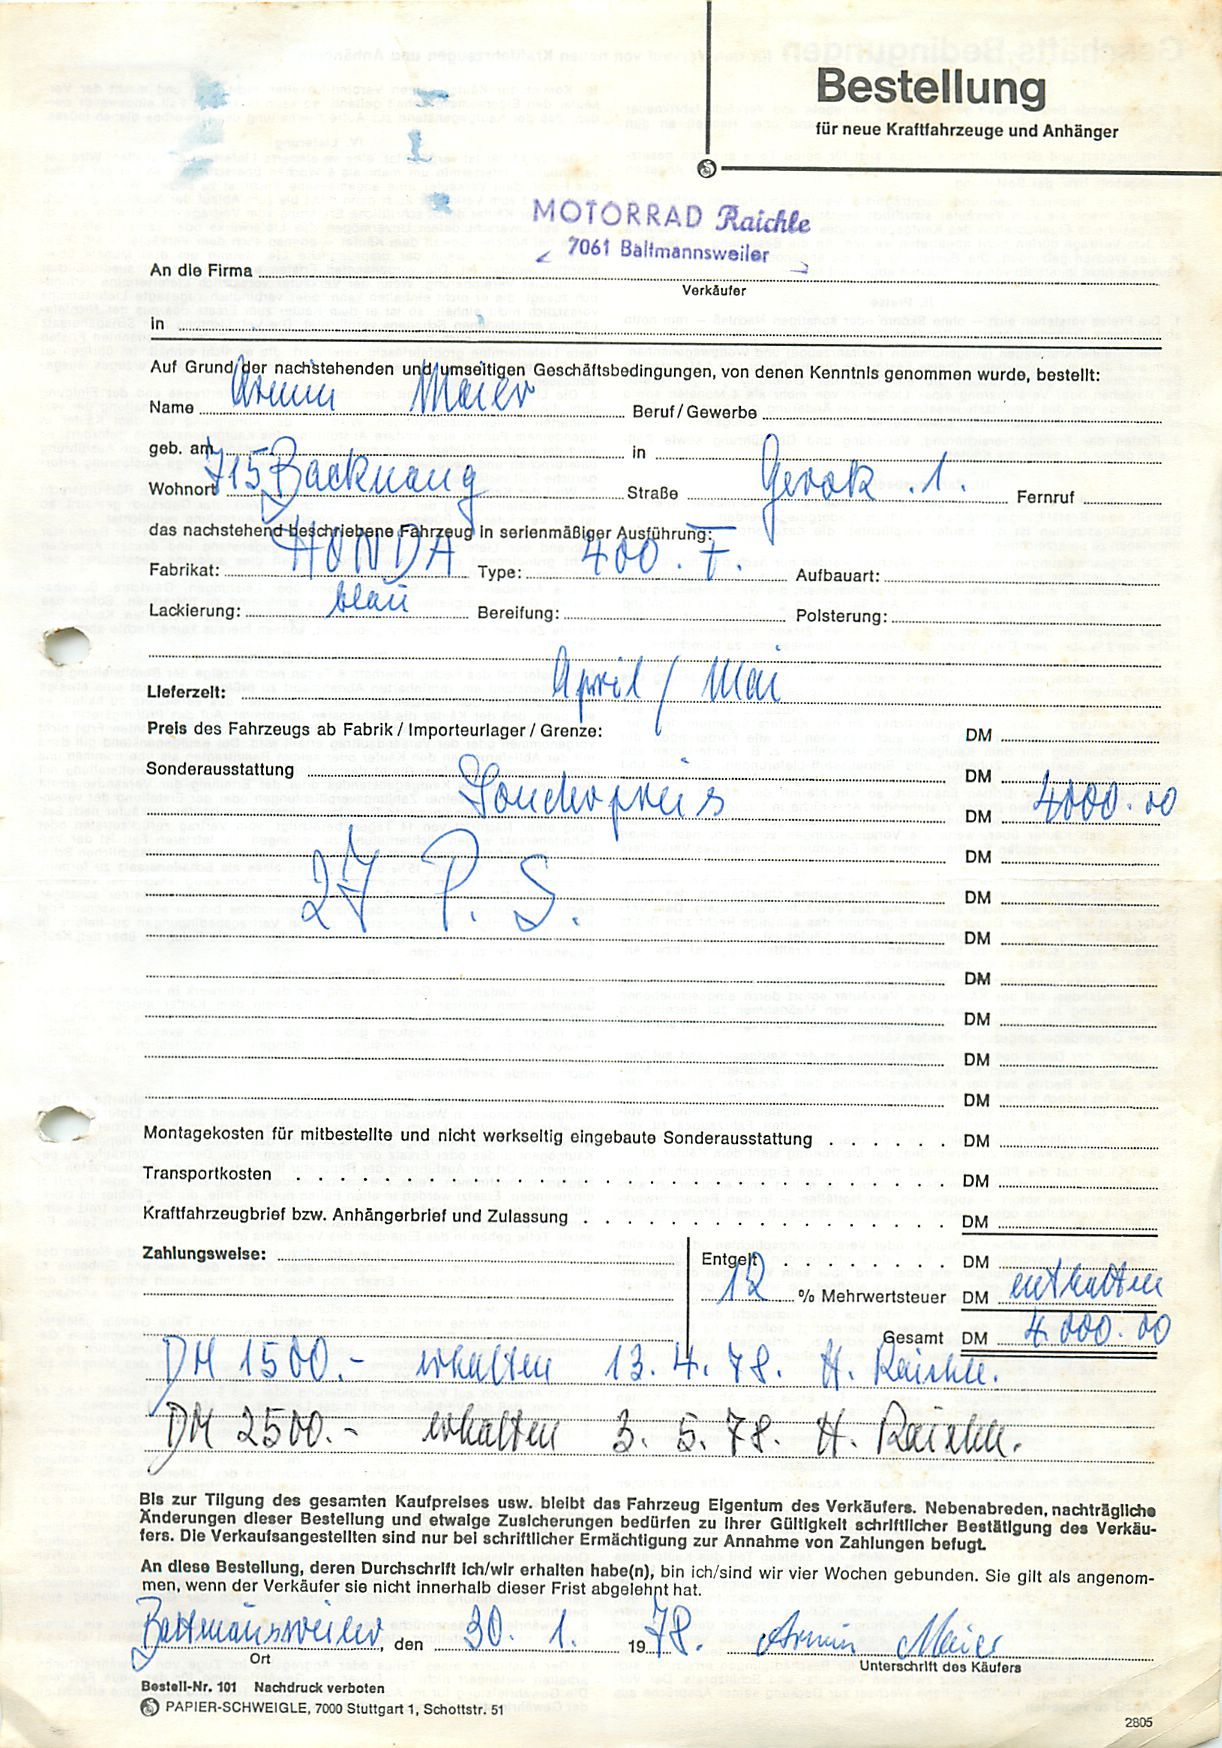 Bestellung
für neue Kraftfahrzeuge und Anhänger
MOTORRAD Raichle
7061 Baltmannsweiler
An die Firma
Verkäufer
in
Auf Grund der nachstehenden und umseitigen Geschäftsbedingungen, von denen Kenntnis genommen wurde, bestellt:
Name Armin Maier Beruf/Gewerbe
geb. am in
Wohnort 715 Backnang Straße Gerok. 1. Fernruf
das nachstehend beschriebene Fahrzeug in serienmäßiger Ausführung:
Fabrikat: HONDA Type: 400. F. Aufbauart:
Lackierung: blau Bereifung: Polsterung:
Lieferzeit: April / Mai
Preis des Fahrzeugs ab Fabrik / Importeurlager / Grenze: DM
Sonderausstattung DM
Sonderpreis DM 4000.00
DM
27 P. S. DM
DM
DM
DM
DM
DM
Montagekosten für mitbestellte und nicht werkseitig eingebaute Sonderausstattung . . . . . . DM
Transportkosten DM
Kraftfahrzeugbrief bzw. Anhängerbrief und Zulassung DM
Zahlungsweise: Entgelt DM
12 % Mehrwertsteuer DM enthalten
Gesamt DM 4.000.00
DM 1500.- erhalten 13. 4. 78. H. Raichle.
DM 2500.- erhalten 3. 5. 78. H. Raichle.
Bis zur Tilgung des gesamten Kaufpreises usw. bleibt das Fahrzeug Eigentum des Verkäufers. Nebenabreden, nachträgliche
Änderungen dieser Bestellung und etwaige Zusicherungen bedürfen zu ihrer Gültigkeit schriftlicher Bestätigung des Verkäu-
fers. Die Verkaufsangestellten sind nur bei schriftlicher Ermächtigung zur Annahme von Zahlungen befugt.
An diese Bestellung, deren Durchschrift ich/wir erhalten habe(n), bin ich/sind wir vier Wochen gebunden. Sie gilt als angenom-
men, wenn der Verkäufer sie nicht innerhalb dieser Frist abgelehnt hat.
Baltmannsweiler den 30. 1. 1978. Armin Maier
Ort Unterschrift des Käufers
Bestell-Nr. 101 Nachdruck verboten
PAPIER-SCHWEIGLE, 7000 Stuttgart 1, Schottstr. 51
2805